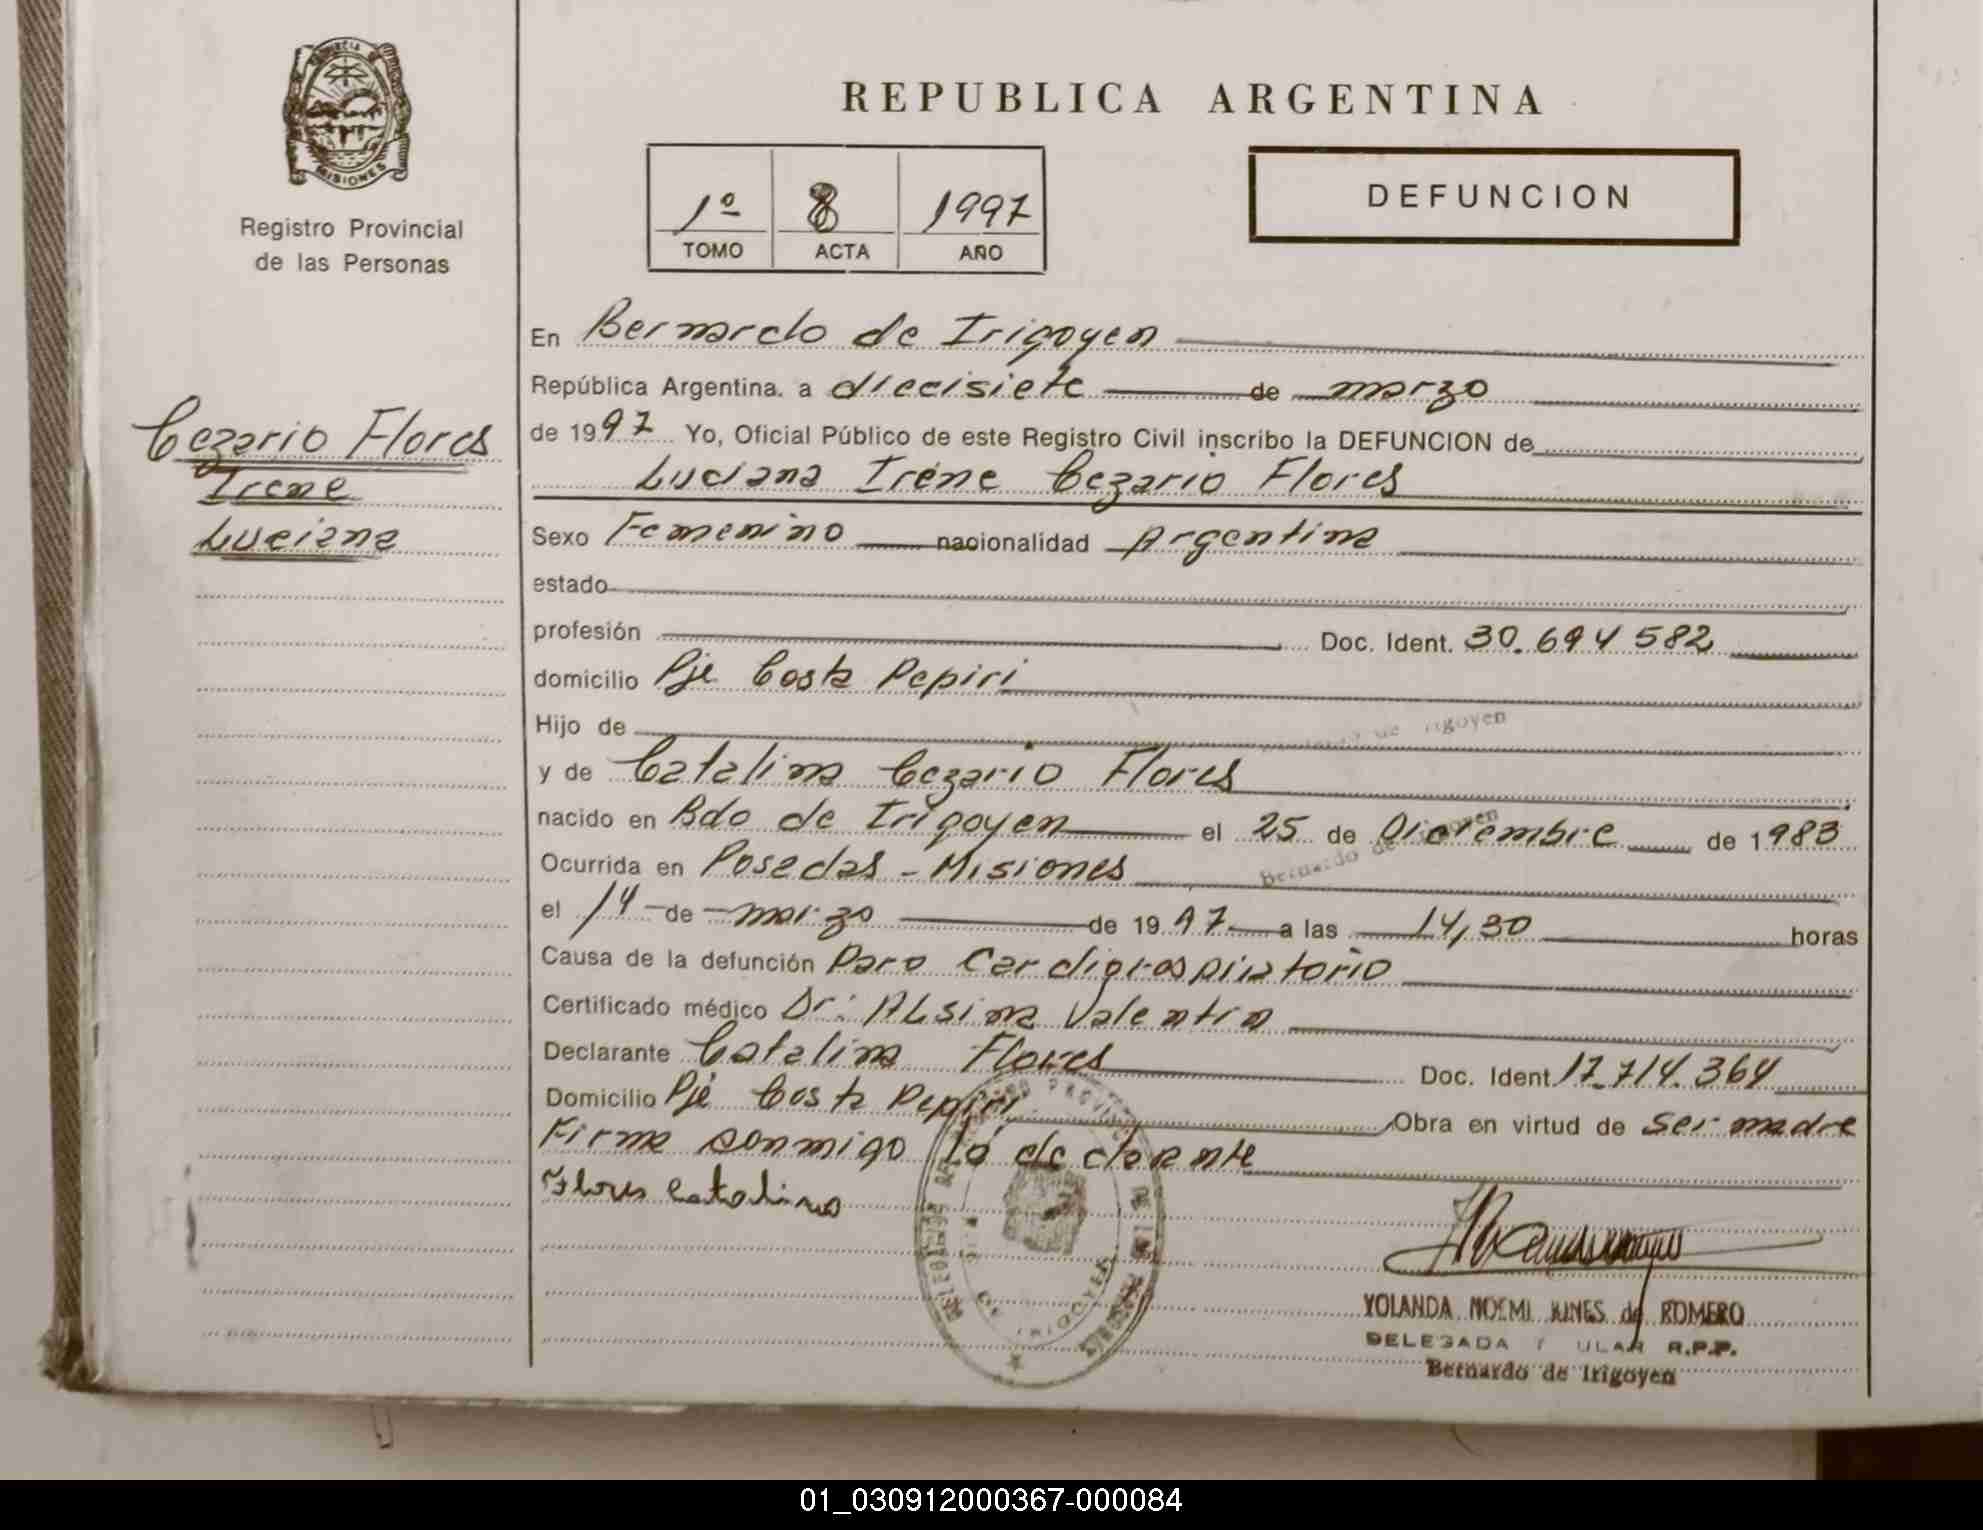 PROVINCIA DE
MISIONES
Registro Provincial
de las Personas
REPUBLICA ARGENTINA
1º 8 1997
TOMO ACTA AÑO
DEFUNCION
Cezario Flores
Irene
Luciana
En Bernardo de Irigoyen
República Argentina. a diecisiete de marzo
de 1997 Yo, Oficial Público de este Registro Civil inscribo la DEFUNCION de
Luciana Irene Cezario Flores
Sexo Femenino nacionalidad Argentina
estado
profesión Doc. Ident. 30.694582
domicilio Pje Costa Pepiri
Hijo de
y de Catalina Cezario Flores
nacido en Bdo de Irigoyen el 25 de Diciembre de 1983
Bernardo de Irigoyen
Ocurrida en Posadas - Misiones
el 14 de marzo de 1997 a las 14,30 horas
Causa de la defunción Paro Cardiorespiratorio
Certificado médico Dr: ALsina Valentin
Declarante Catalina Flores Doc. Ident. 17.714.364
Domicilio Pje Costa Pepiri Obra en virtud de ser madre
Firma conmigo la declarante
Flores Catalina
YOLANDA NOEMI de ROMERO
DELEGADA R.P.P.
Bernardo de Irigoyen
01_030912000367-000084